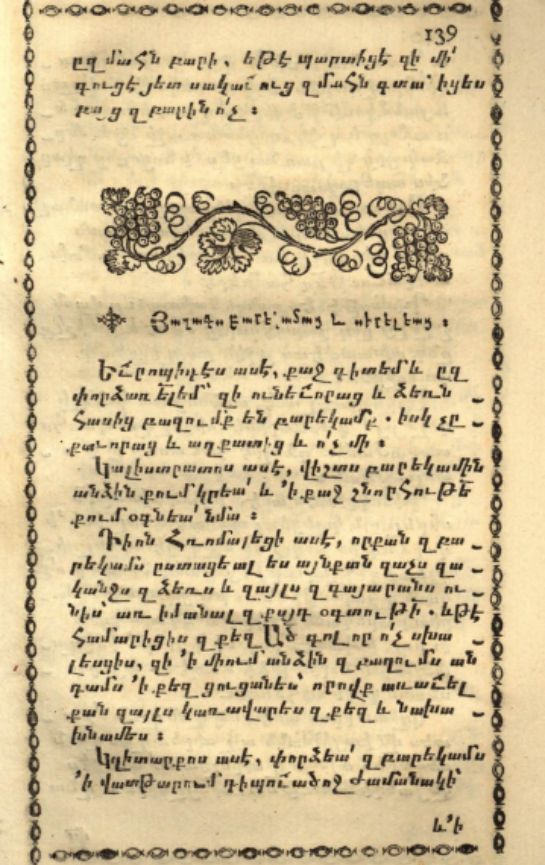 139
ըզմահն բարի, եթէ պարտիցէ զի մի՛
գուցէ յետ սակաւ ուց զմահն գտա՝ իցես
բա ց զբարին ո՛չ ։
Յաղագս բարեկամաց և սիրելեաց ։
Եւրոպիդէս ասէ, քաջ գիտեմ և ըզ
փորձառ եղեմ՝ զի ունեւորաց և ձեռն
հասից բազումք են բարեկամք. իսկ չը
քաւորաց և աղքատից և ո՛չ մի ։
Կալիստրատոս ասէ, վիշտս բարեկամին
անձին քում կրեա՛ և ՚ի քաջ շնորհութե՜
քում օգնեա՛ նմա ։
Դիոն Հռոմայեցի ասէ, որքան զբա
րեկամս ըստացեալ ես այնքան զաչս զա
կանջս զձեռս և զայլս զգայարանս ու
նիս՝ առ իմանալ զքայդ օգտու թի՜. եթէ
համարիցիս զքեզ Ած գոլ որ ո՛չ սխա
լեսցիս, զի ՚ի միում անձին զբազումս ան
դամս ՚ի քեզ ցուցանես՝ որովք առաւել
քան զայլս կառավարես զքեզ և նախա
խնամես ։
Կլիտարքոս ասէ, փորձեա՛ զբարեկամս
՚ի վատթարում դիպուածոց ժամանակի՝
և ՚ի